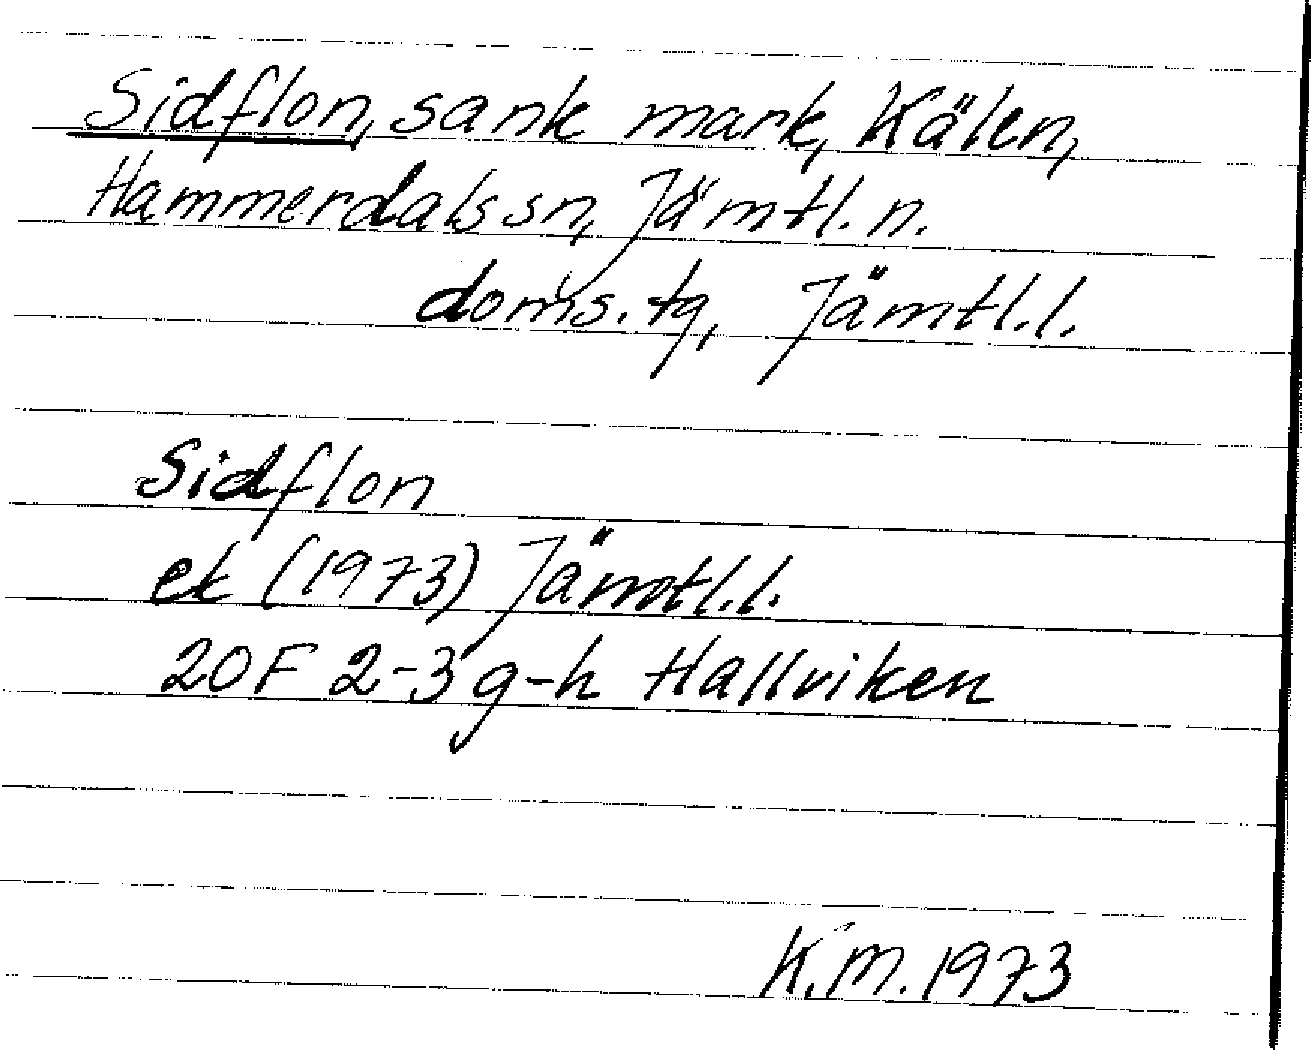 Sidflon, sank mark, Kälen,
Hammerdals sn, Jämtl. n.
doms. tg, Jämtl. l.
Sidflon
ek (1973) Jämtl. l.
20F 2-3 g-h Hallviken
K.M. 1973